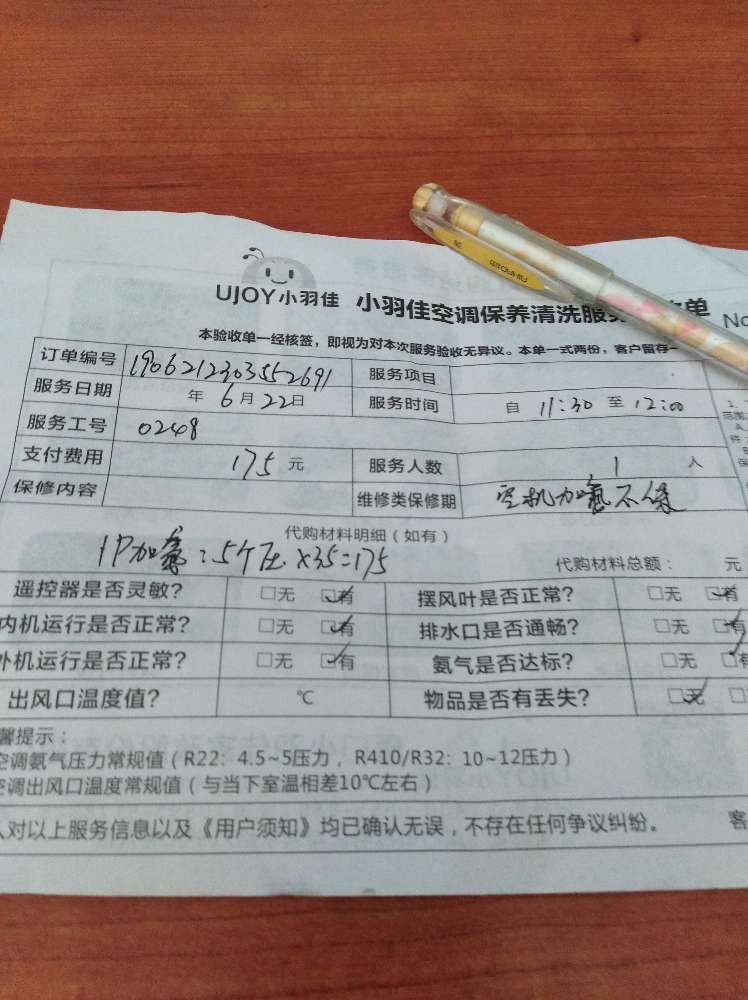 UJOY小羽佳 小羽佳空调保养清洗服务 单 No
本验收单一经核签，即视为对本次服务验收无异议。本单一式两份，客户留存一
订单编号 1906212303552691 服务项目
服务日期 年6月22日 服务时间 自 11:30 至 12:00
服务工号 0248
支付费用 175元 服务人数 1 人
保修内容 维修类保修期 空机加氨不保
代购材料明细（如有）
1P加氨：5个压×35=175 代购材料总额： 元
遥控器是否灵敏？ □无 □有 摆风叶是否正常？ □无 □有
内机运行是否正常？ □无 □有 排水口是否通畅？ □无 □有
外机运行是否正常？ □无 □有 氨气是否达标？ □无 □有
出风口温度值？ ℃ 物品是否有丢失？ □无 □
馨提示：
空调氨气压力常规值（R22：4.5~5压力，R410/R32：10~12压力）
空调出风口温度常规值（与当下室温相差10℃左右）
人对以上服务信息以及《用户须知》均已确认无误，不存在任何争议纠纷。 客